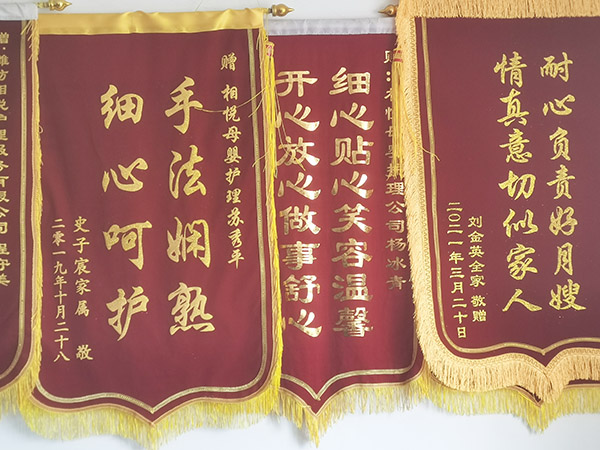 赠 相悦母婴护理苏秀平
手法娴熟
细心呵护
史子宸家属 敬
二零一九年十月二十八
理公司杨冰青
细心贴心笑容温馨
开心放心做事舒心
耐心负责好月嫂
情真意切似家人
刘金英全家 敬赠
二〇二一年三月二十日